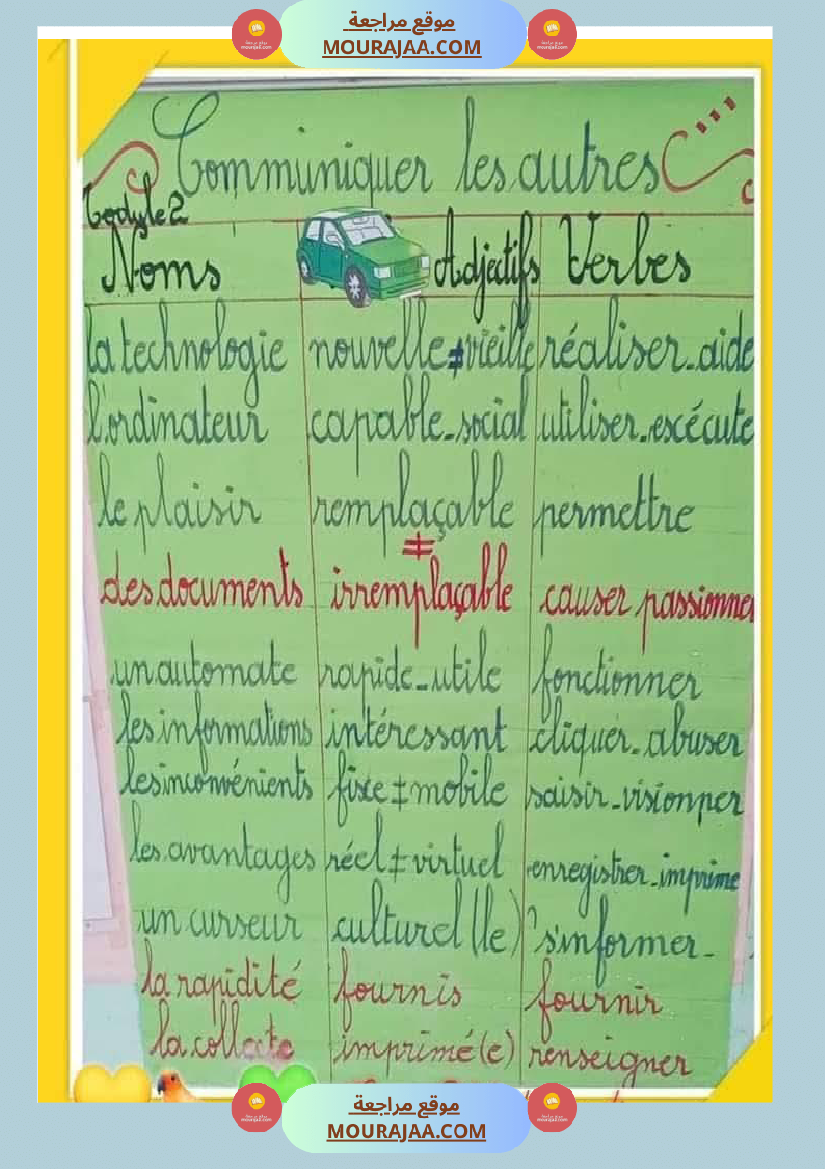 موقع مراجعة
MOURAJAA.COM
Communiquer les autres
Module 2
Noms Adjectifs Verbes
la technologie nouvelle ≠ vieille réaliser - aide
l'ordinateur capable - social utiliser - excécute
le plaisir remplaçable permettre
≠
des documents irremplaçable causer passionner
un automate rapide - utile fonctionner
les informations intéressant cliquer - abuser
les inconvénients fixe ≠ mobile saisir - visionner
les avantages réel ≠ virtuel enregistrer - imprime
un curseur culturel (le) s'informer -
la rapidité fournis fournir
la collecte imprimé(e) renseigner
موقع مراجعة
MOURAJAA.COM